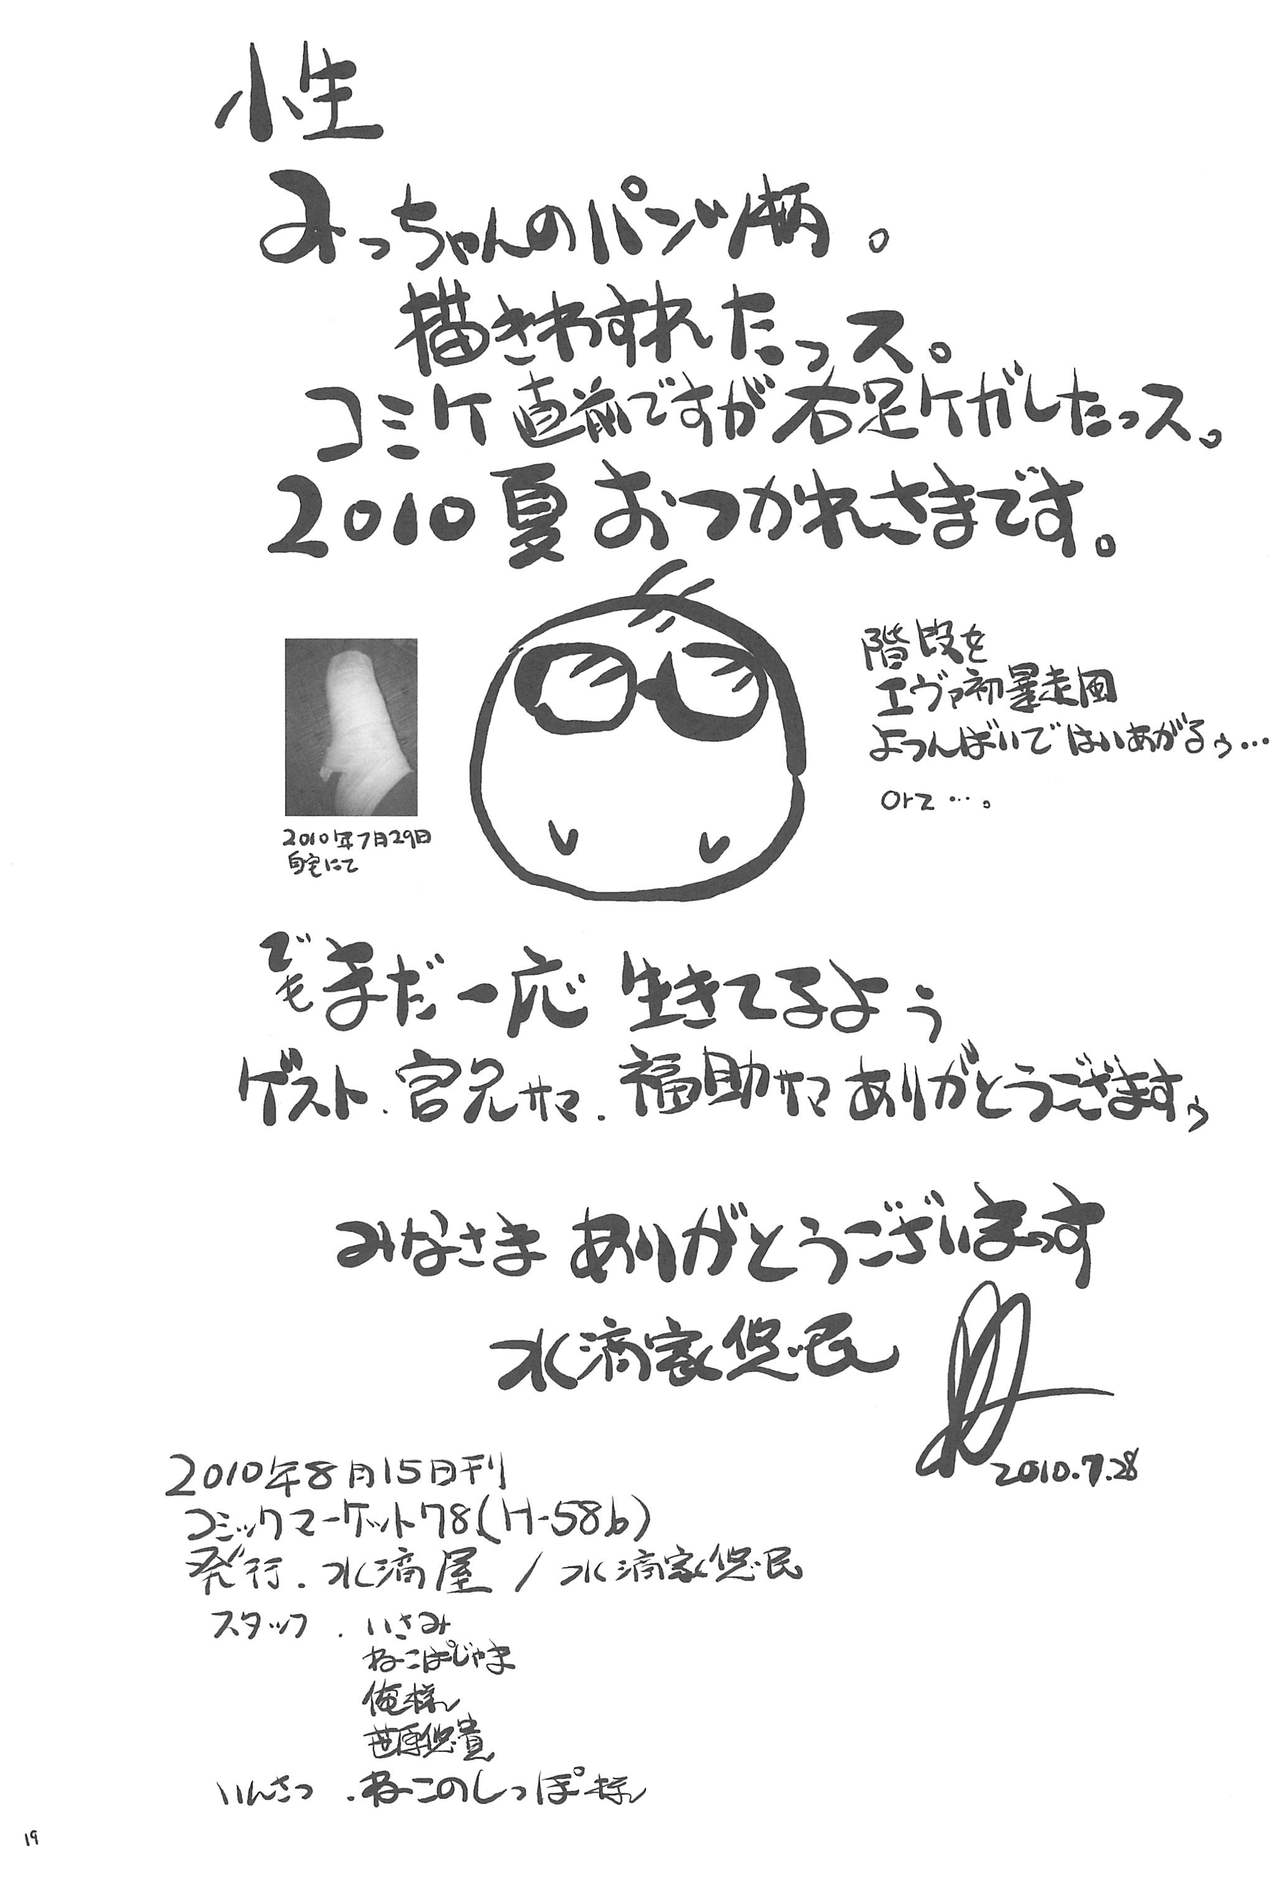 小生
みっちゃんのパンツ柄。
描きわすれたっス。
コミケ直前ですが右足ケガしたっス。
2010夏おつかれさまです。
階段を
エヴァ初暴走風
よつんばいではいあがるぅ…
orz…。
2010年7月29日
自宅にて
でもまだ一応 生きてるよぅ
ゲスト.宮兄サマ.福助サマありがとうございますぅ
みなさまありがとうございまっす
水滴家悠民
2010.7.28
2010年8月15日刊
コミックマーケット78(H-58b)
発行.水滴屋/水滴家悠民
スタッフ.いさみ
ねこぱじゃま
俺様
笹原悠貴
いんさつ.ねこのしっぽ様
19